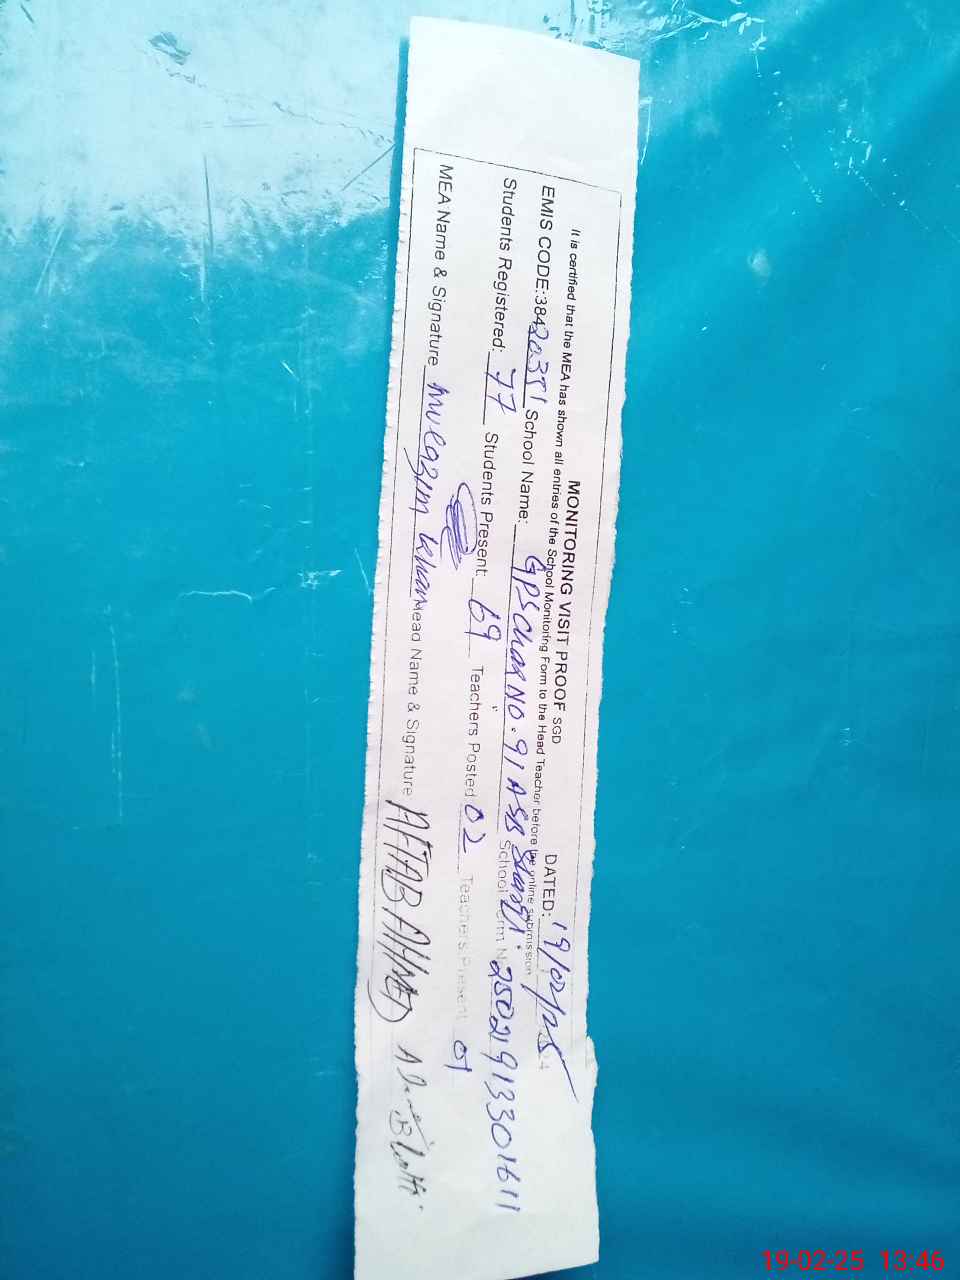 MONITORING VISIT PROOF SGD DATED: 19/02/25
It is certified that the MEA has shown all entries of the School Monitoring Form to the Head Teacher before the online submission
EMIS CODE:38420351 School Name: GPS Chak NO. 91 A SB School Form No 25021913301611
Students Registered: 77 Students Present: 69 Teachers Posted 02 Teachers Present 01
MEA Name & Signature Mulazim Khan Head Name & Signature AFTAB AHMED
19-02-25 13:46